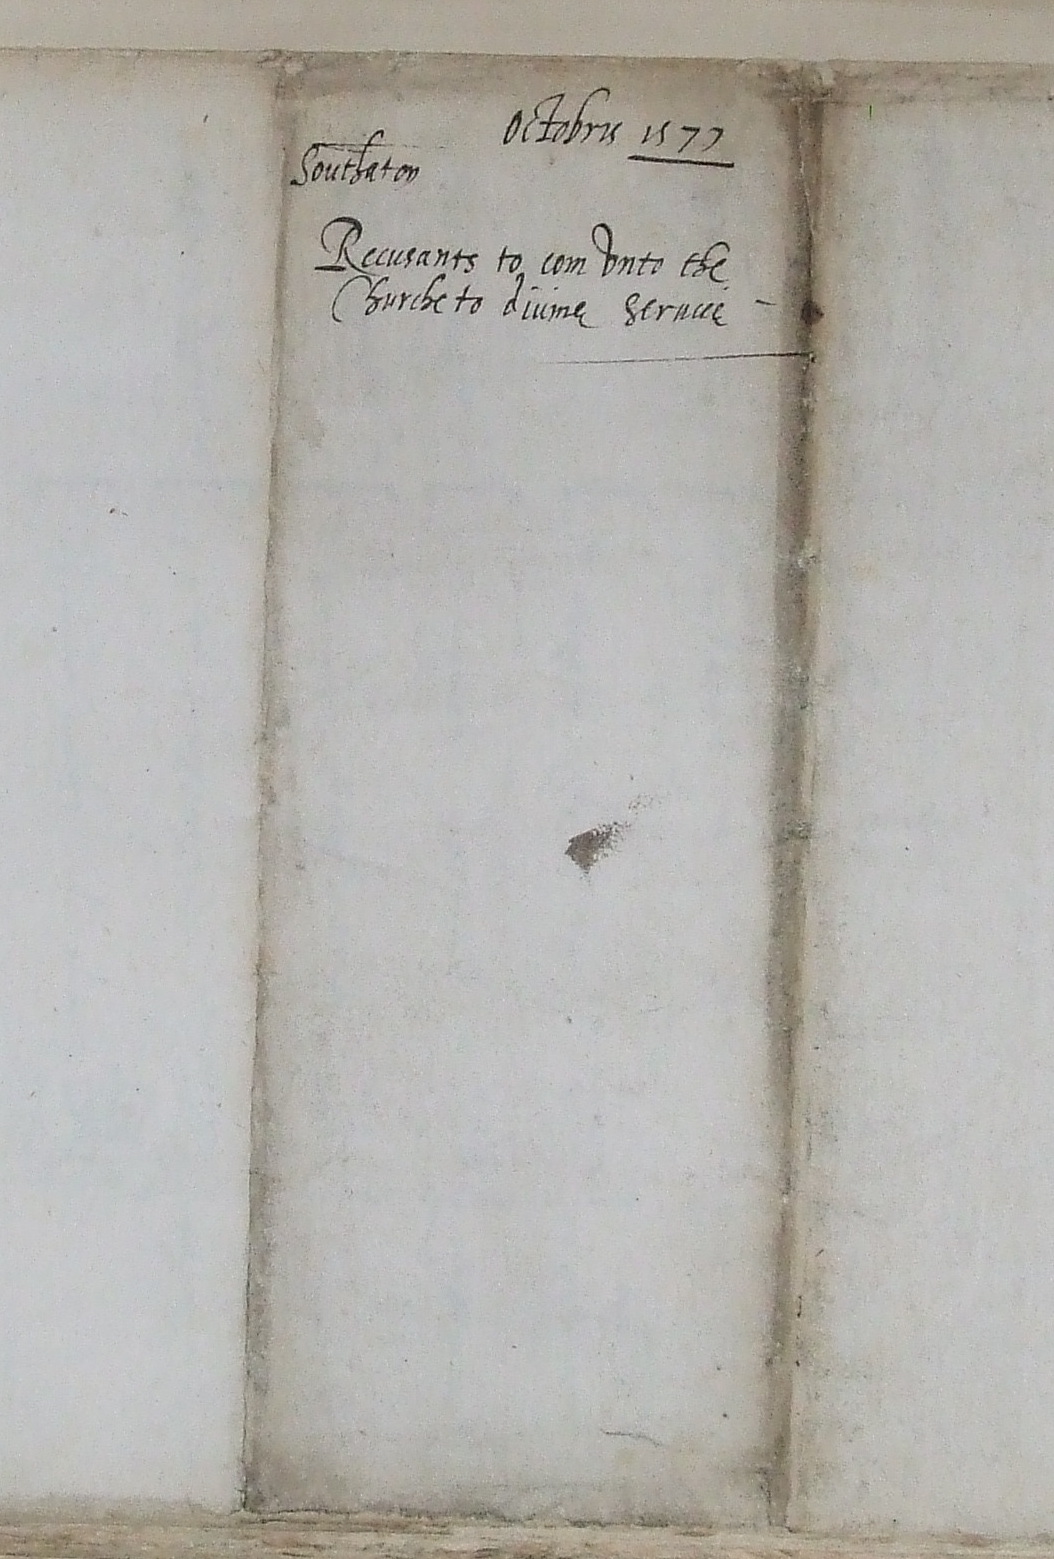 Octobris 1577
Southaton
Recusants to com vnto the
Churche to diuine seruice